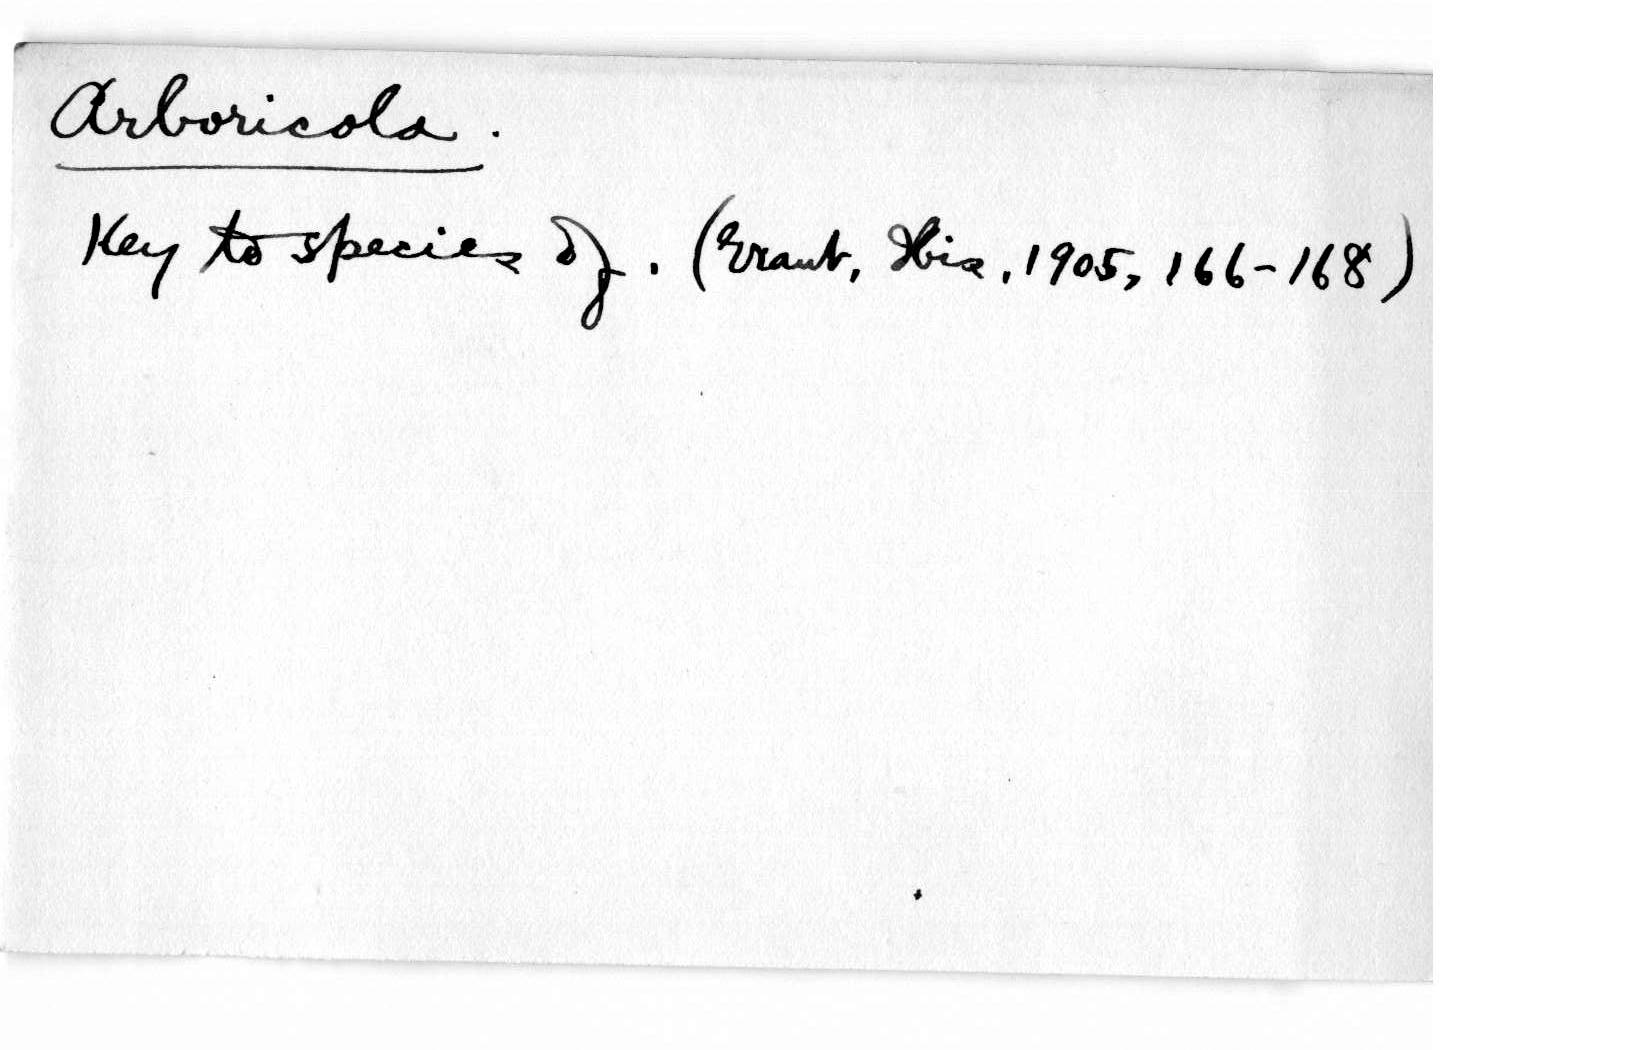 Arboricola.
Key to species of. (Grant, Ibis, 1905, 166-168)